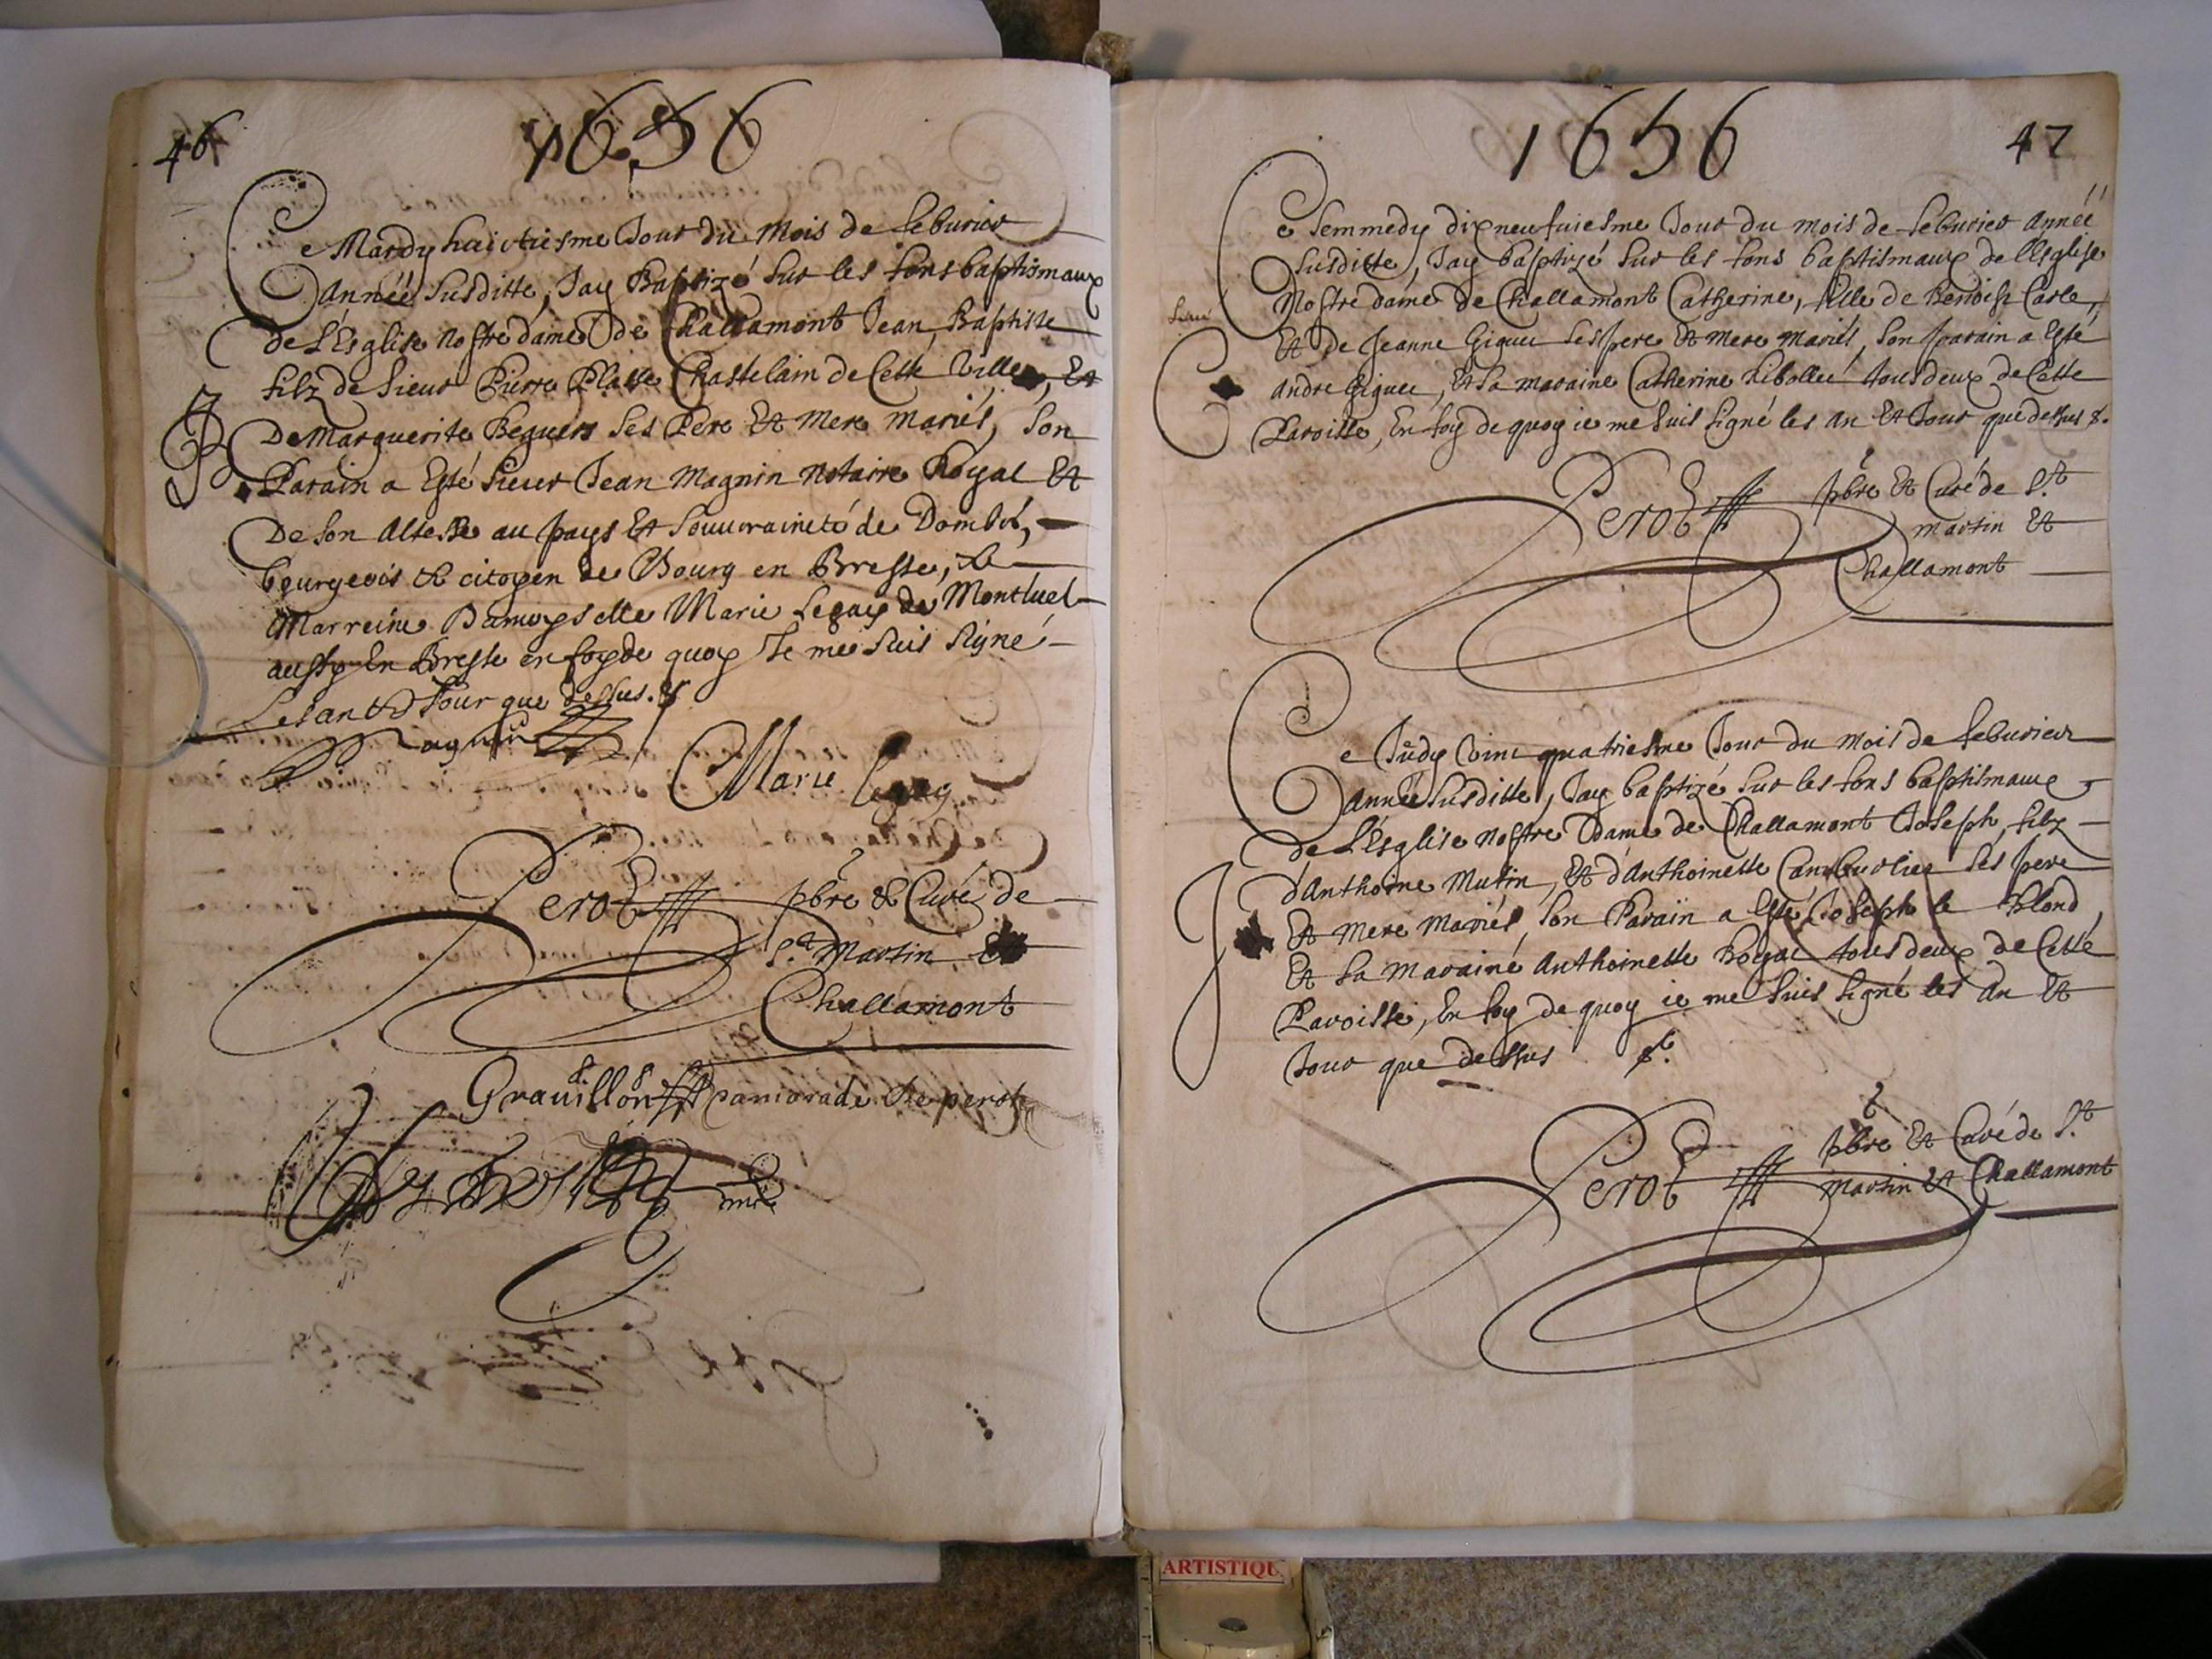 46
1656
Ce Mardy huictiesme Jour du Mois de feburier
Année susditte, Jay Baptizé sur les fons baptismaux
de L'Esglise nostre dame de Challamont Jean Baptiste
filz de sieur Pierre Platte Chastelain de Cette Ville, Et
De Marguerite Beguers ses Pere Et Mere mariés, son
Parain a Esté sieur Jean Magnin Notaire Royal Et
De son Altesse au pays Et souueraineté de Dombes,
bourgeois et citoyen de Bourg en Bresse, sa
Marreine Damoyselle Marie Leguy de Montluel
aussy En Bresse en foy de quoy Je me suis signé
Les an et Jour que dessus. &
Magnin
Marie Leguy
Perot pbre & Curé de
St Martin Et
Challamont
Grauillon camorade De perot
1656
47
Ce semmedy dixneufuiesme Jour du mois de feburier année
susditte, Jay baptizé sur les fons baptismaux de l'Esglise
Nostre dame de Challamont Catherine, fille de Benoist Carle,
Et de Jeanne Giguer ses pere Et mere mariés, son parain a Esté
Andre Giguer, Et sa maraine Catherine Ribollet tous deux de Cette
Paroisse, En foy de quoy ie me suis signé les An Et Jour que dessus &.
C
Perot pbre Et Curé de St
martin Et
Challamont
Ce Judy vint quatriesme Jour du mois de feburier
Année susditte, Jay baptizé sur les fons baptismaux
de L'Esglise nostre Dame de Challamont Joseph, filz
d'Anthoine Mutin, Et d'Anthoinette ses pere
Et mere mariés, son Parain a Esté Joseph le Blond,
Et sa maraine Anthoinette Royat tous deux de Cette
Paroisse, En foy de quoy ie me suis signé les An Et
Jour que dessus &.
J
Perot pbre Et Curé de St
martin Et Challamont
ARTISTIQU